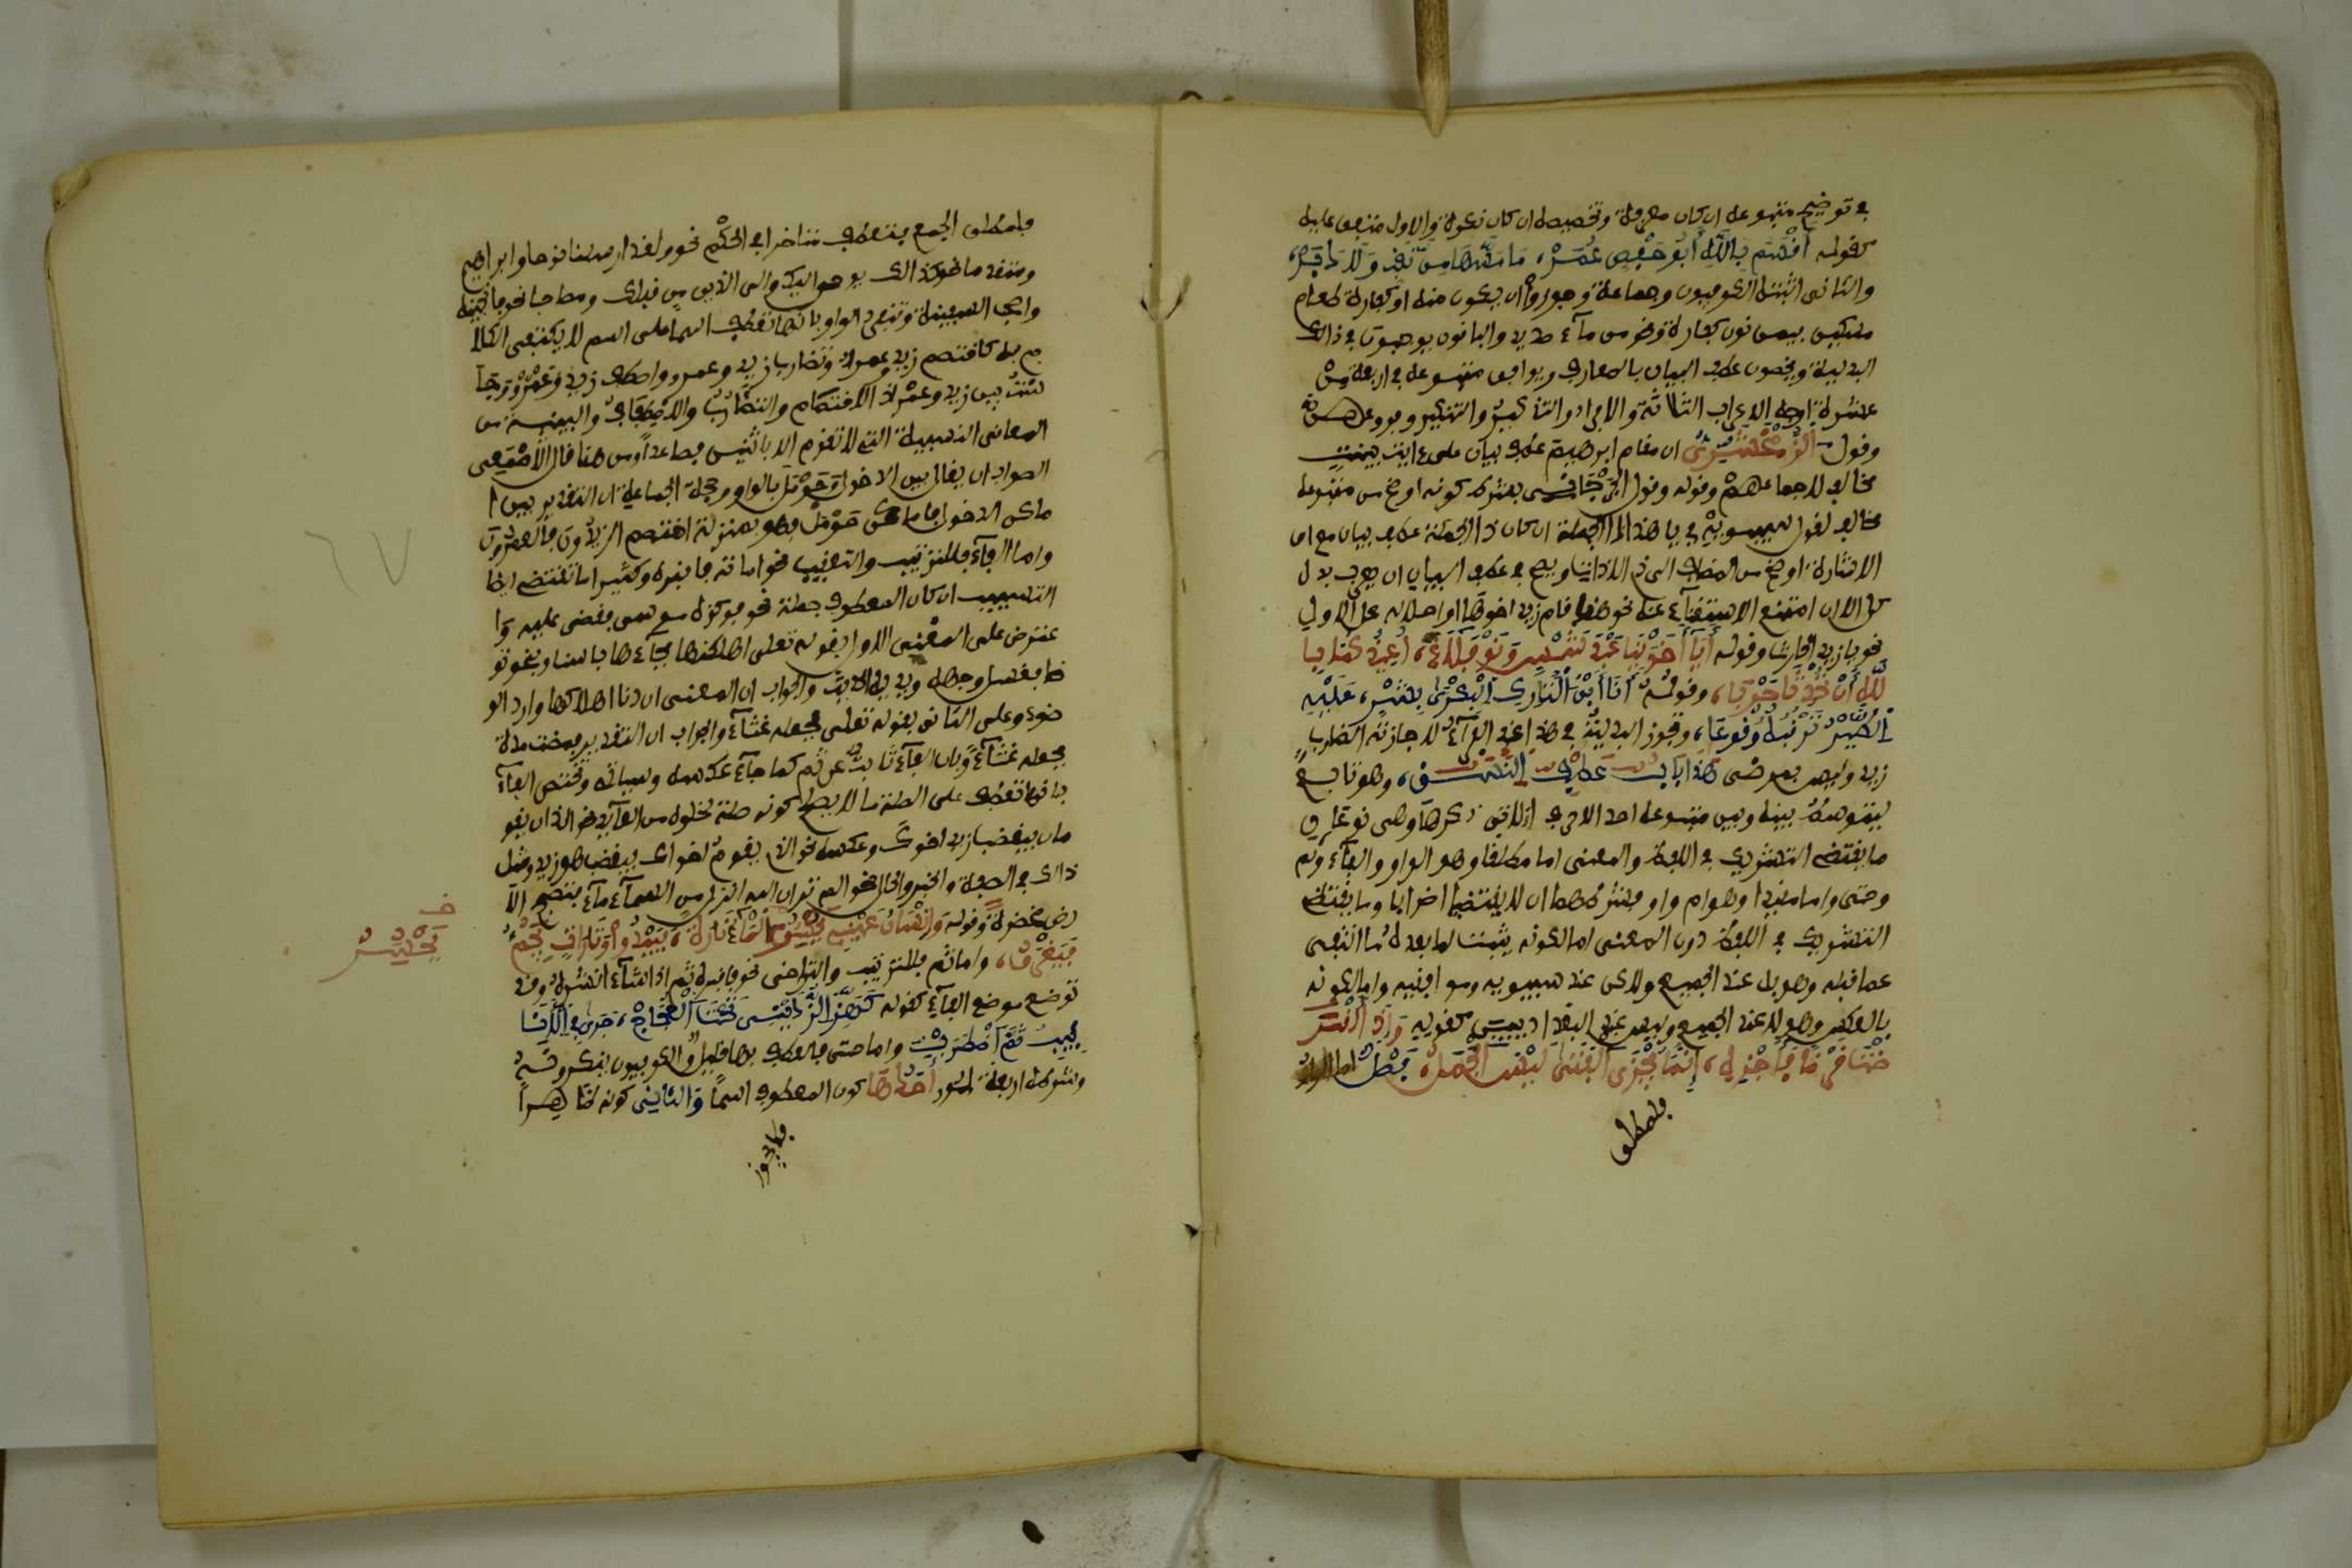 في توضيح متبوعه ان كان معرفة وتخصيصه ان كان نكرة والاول متفق عليه
كقوله أَقْسَمَ بِاللَّهِ أَبُو حَفْصٍ عُمَرْ، مَا مَسَّهَا مِنْ نَقَبٍ وَلَا دَبَرْ،
والثاني اثبته الكوفيون وجماعة وجوزوا ان يكون منه او كفارة طعام
مسكين بيمن نون كفارة ونحو من ماء صديد والباقون يوجبون في ذالك
البدلية ويخصون عطف البيان بالمعارف ويوافق متبوعه في اربعة من
عشرة اوجه الاعراب الثلاثة والافراد والتذكير والتنكير وفروعهن
وقول الزَّمَخْشَرِيِّ ان مقام ابرهيم عطف بيان على ءايت بينت
مخالف لاجماعهم وقوله وقول الجرجاني يشترط كونه اوضح من متبوعه
مخالف لقول سيبويه في يا هذا ذا الجمة ان كان ذا الجمة عطف بيان مع ان
الاشارة اوضح من المضاف الى ذي الاداة ويصح في عطف البيان ان يعرب بدل
كل الا ان امتنع الاستغناء عنه نحو هند قام زيد اخوها او احلاله محل الاول
نحو يا زيد الحارث وقوله أَيَا أَخَوَيْنَا عَبْدَ شَمْسٍ وَنَوْفَلَا، أُعِيذُكُمَا بِا
للَّهِ أَنْ تُحْدِثَا حَرْبَا، وقوله أَنَا ابْنُ التَّارِكِ الْبَكْرِيِّ بِشْرٍ، عَلَيْهِ
الطَّيْرُ تَرْقُبُهُ وُقُوعَا، وتجوز البدلية في هذا عند الفراء لاجازته الضارب
زيد وليس بمرضى هذا باب عطف النسق، وهو تابع
يتوسط بينه وبين متبوعه احد الاحرف الاتي ذكرها وهي نوعان
ما يقتضي التشريك في اللفظ والمعنى اما مطلقا وهو الواو والفاء وثم
وحتى واما مقيدا وهو ام واو فشرطهما ان لا يقتضيا اضرابا وما يقتضي
التشريك في اللفظ دون المعنى اما لكونه يثبت لما بعده ما انتفى
عما قبله وهو بل عند الجميع ولكن عند سيبويه وموافقيه واما لكونه
بالعكس وهو لا عند الجميع وليس عند البغداديين كقوله وَإِذَا أُقْرِ
ضْتَ قَرْضًا فَاجْزِهِ، إِنَّمَا يَجْزِي الْفَتَى لَيْسَ الْجَمَلْ، فصل اما الواو
فلمطلق
فلمطلق الجمع فتعطف متاخرا في الحكم نحو ولقد ارسلنا نوحا وابراهيم
ومتقدما نحو كذالك يوحى اليك والى الذين من قبلك ومصاحبا نحو فانجينه
واصحب السفينة وتنفرد الواو بانها تعطف اسما على اسم لا يكتفي الكلا
م به كاختصم زيد وعمرو وتضارب زيد وعمرو واصطف زيد وعمرو وجلـ
ست بين زيد وعمرو اذ الاختصام والتضارب والاصطفاف والبينية من
المعاني النسبية التي لا تقوم الا باثنين فصاعدا ومن هنا قال الأصمعي
الصواب ان يقال بين الدخول وحومل بالواو وحجة الجماعة ان التقدير بين ا
ماكن الدخول فاماكن حومل فهو بمنزلة اختصم الزيدون فالعمرون
واما الفاء فللترتيب والتعقيب نحو اماته فاقبره وكثيرا ما تقتضي ايضا
التسبيب ان كان المعطوف جملة نحو فوكزه موسى فقضى عليه وا
عترض على المعنى الاول بقوله تعلى اهلكنها فجاءها باسنا ونحو تو
ضا فغسل وجهه ويديه الحديث والجواب ان المعنى اردنا اهلاكها واراد الو
ضوء وعلى الثاني بقوله تعلى فجعله غثاء والجواب ان التقدير فمضت مدة
فجعله غثاء وبان الفاء نابت عن ثم كما جاء عكسه وسياتي وتختص الفاء
بانها تعطف على الصلة ما لا يصح كونه صلة لخلوه من العائد نحو اللذان يقو
مان فيغضب زيد اخواك وعكسه نحو الذي يقوم اخواك فيغضب هو زيد ومثل
ذالك في الصفة والخبر والحال نحو الم تر ان الله انزل من السماء ماء فتصبح الا
رض مخضرة وقوله وَإِنْسَانُ عَيْنِي يَحْسِرُ الْمَاءُ تَارَةً، فَيَبْدُو وَتَارَاتٍ يَجُمُّ
فَيَغْرَقُ، واما ثم فللترتيب والتراخي نحو فاقبره ثم اذا شاء انشره وقد
توضع موضع الفاء كقوله كَهَزِّ الرُّدَيْنِيِّ تَحْتَ الْعَجَاجِ، جَرَى فِي الْأَنَا
بِيبِ ثُمَّ اضْطَرَبْ، واما حتى فالعطف بها قليل والكوفيون ينكرونه
وشروطه اربعة امور أحدها كون المعطوف اسما والثاني كونه ظاهرا
فلا يجوز
خـ
يَحْسِرُ
٦٧